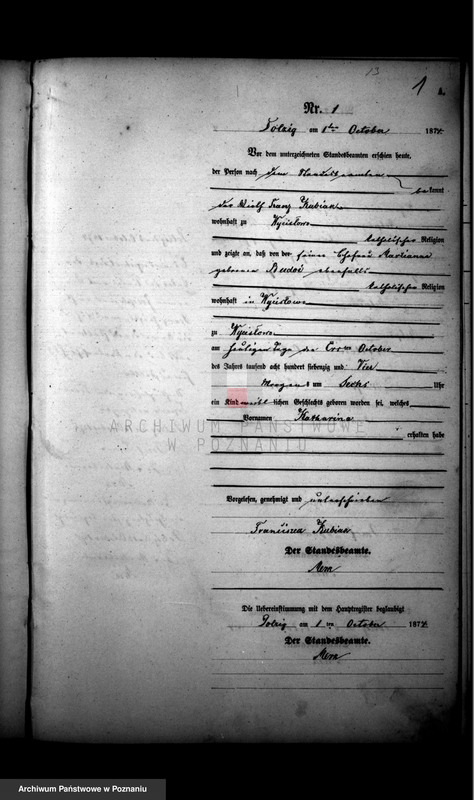 13
1
A.
Nr. 1
am 1ten October 1874.
Vor dem unterzeichneten Standesbeamten erschien heute,
der Person nach dem Standesbeamten
bekannt
der Wirth Franz Kubiak
wohnhaft zu
katholischer Religion
und zeigte an, daß von der seiner Ehefrau Marianne
geborenen ebenfalls
katholischer Religion
wohnhaft in
zu
am heutigen Tage October
des Jahrs tausend acht hundert siebenzig und Vier
Morgens um Sechs Uhr
ein Kind weiblichen Geschlechts geboren worden sei, welches
Vornamen Katharina
erhalten habe
ARCHIWUM PAŃSTWOWE
W POZNANIU
Vorgelesen, genehmigt und unterschrieben
Kubiak
Der Standesbeamte.
Die Uebereinstimmung mit dem Hauptregister beglaubigt
am 1 ten October 1874.
Der Standesbeamte.
Archiwum Państwowe w Poznaniu